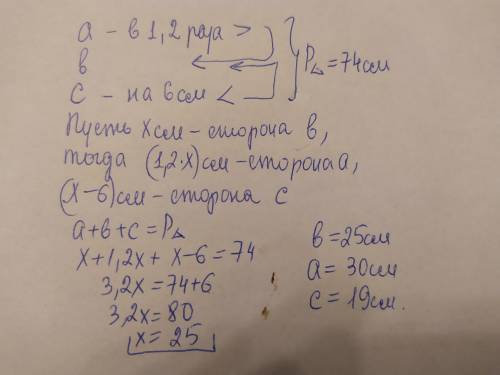 a - в 1,2 раза >
в
с - на 6 см <
P△ = 74см
Пусть х см - сторона в,
тогда (1,2·х) см - сторона а,
(х-6) см - сторона с
a+в+c = P△
х+1,2х+ х-6=74
3,2х=74+6
3,2х=80
х= 25
в=25см
а= 30см
с= 19см.